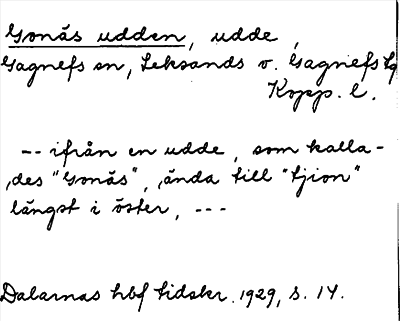 Gonäs udden, udde,
Gagnefs sn, Leksands o. Gagnefs tg
Kopp. l.
-- ifrån en udde, som kalla-
des "Gonäs", ända till "tjion"
längst i öster, ---
Dalarnas hbf tidskr. 1929, s. 14.